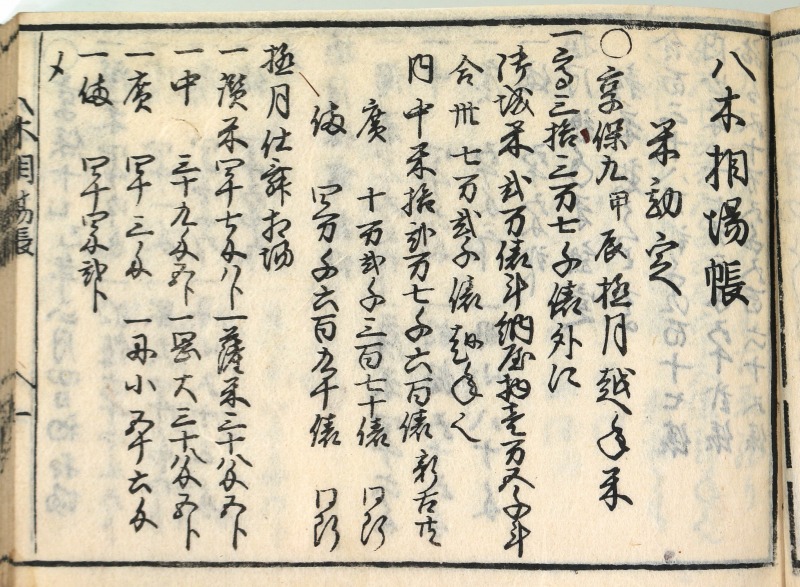 八木相場帳
米勘定
〇享保九甲辰極月越年米
一高三拾三万七千俵外に
御城米弐万俵斗納屋物壱万五千斗
合卅七万弐千俵越年也
内中米拾弐万七千六百俵新古共
廣十万弐千三百七十俵同断
備四万千六百九十俵同断
極月仕舞相場
一讃米四十七匁八卜一薩米三十八匁五卜
一中三十九匁五卜一岡大三十八匁五卜
一廣四十三匁一丹小五十六匁
一備四十四匁弐卜
〆
八木相場帳
八一